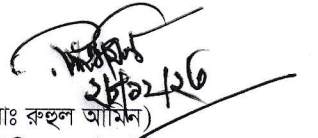 ২৮/১২/২৩
াঃ রুহুল আমিন)